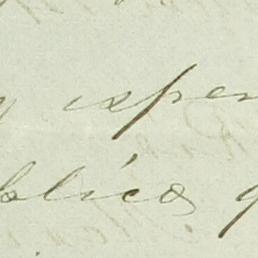 y esper
blicos q